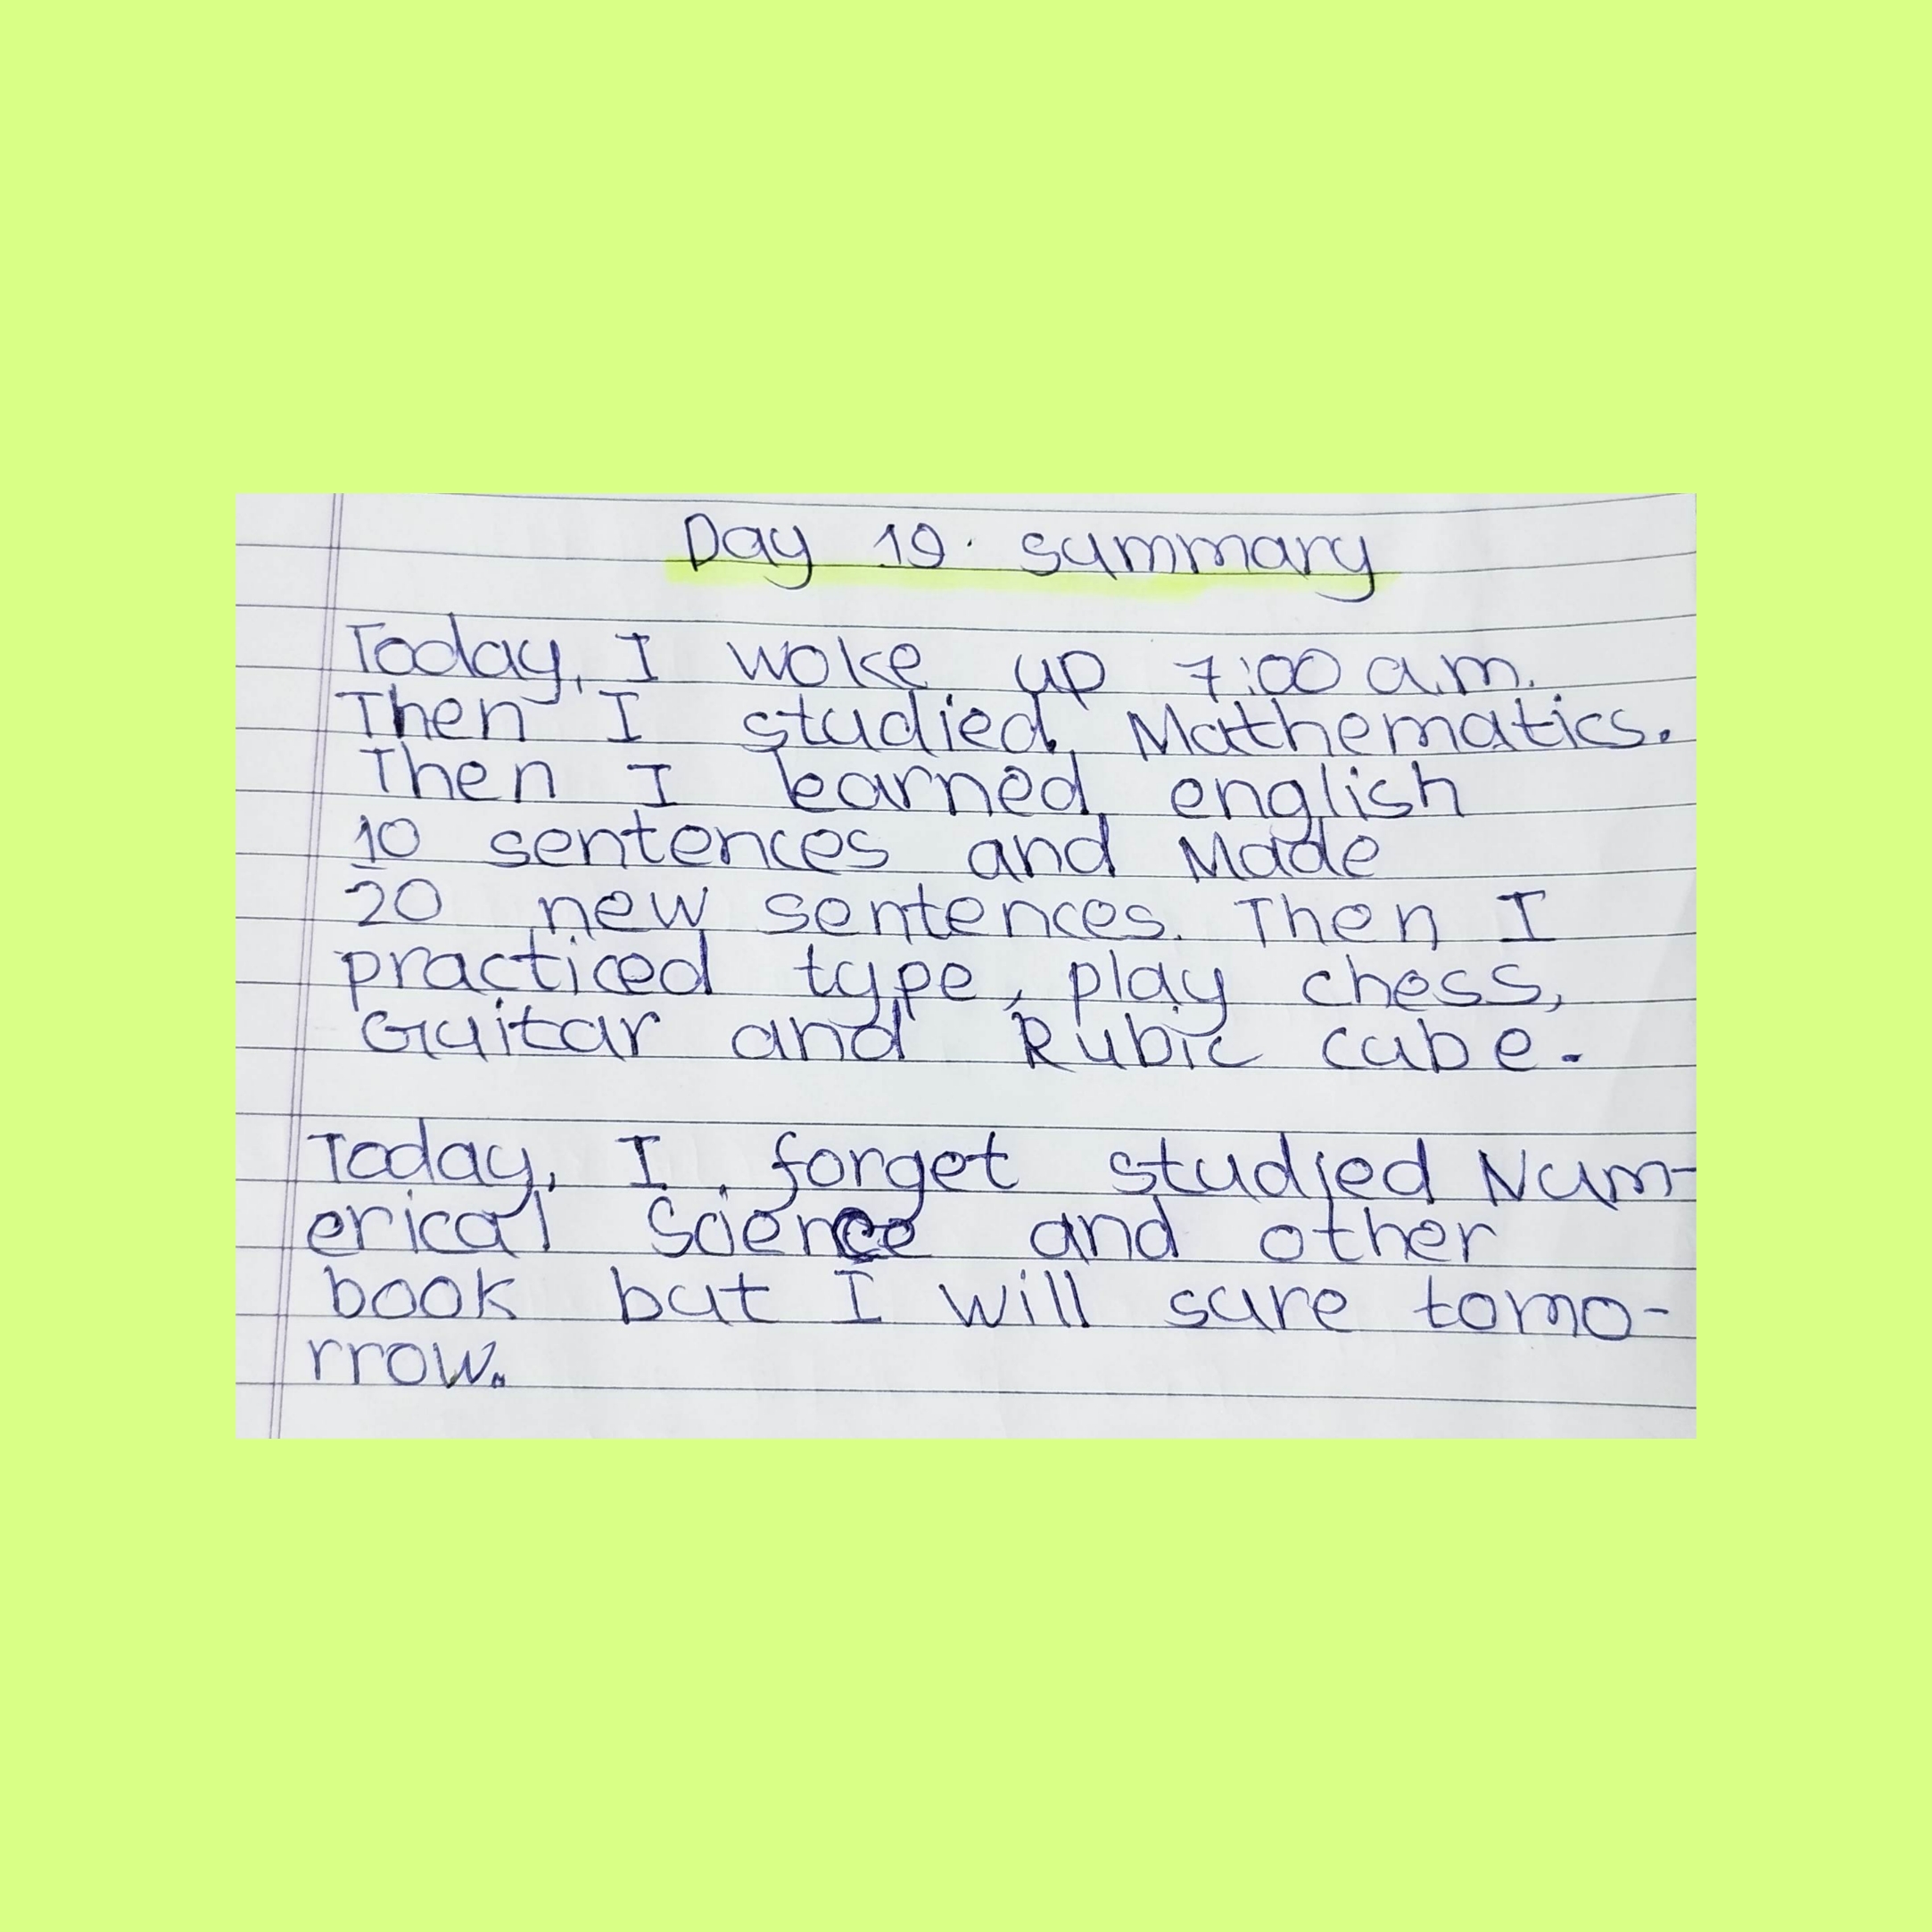 Day 19. summary
Today, I woke up 7:00 a.m.
Then I studied Mathematics.
Then I learned english
10 sentences and Made
20 new sentences. Then I
practiced type, play chess,
Guitar and Rubic cube.
Today, I forget studied Num-
erical Science and other
book but I will sure tomo-
rrow.